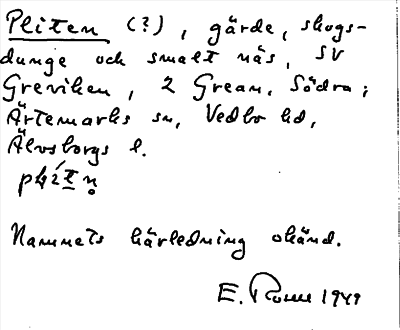 Pliten (?), gärde, skogs-
dunge och smalt näs, SV
Greviken, 2 Grean, Södra;
Ärtemarks sn, Vedbo hd,
Älvsborgs l.
Namnets härledning okänd.
E. 1949